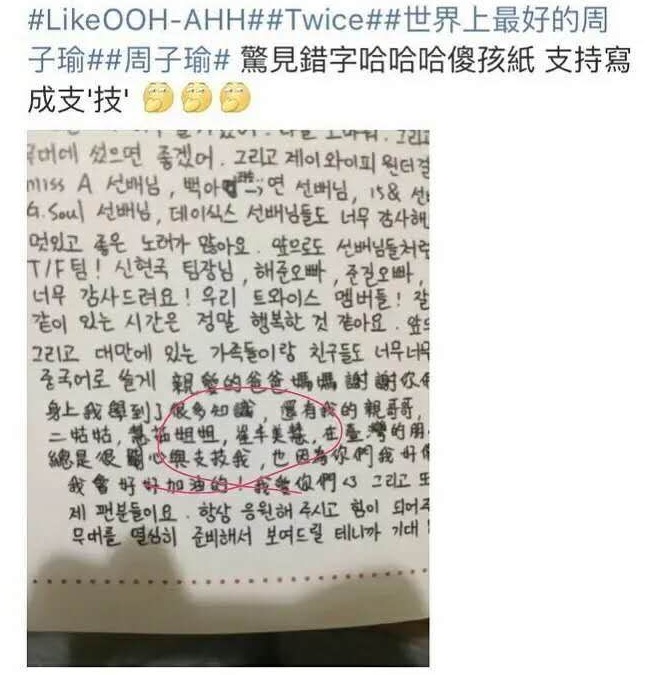 #LikeOOH-AHH##Twice##世界上最好的周
子瑜##周子瑜# 驚見錯字哈哈哈傻孩紙 支持寫
成支'技'
무대에 섰으면 좋겠어. 그리고 제이와이피 원더걸
miss A 선배님, 백아 연 선배님, 15& 선배
G.Soul 선배님, 데이식스 선배님들도 너무 감사해
멋있고 좋은 노래가 많아요. 앞으로도 선배님들처럼
T/F팀! 신현국 팀장님, 해준오빠, 준길오빠,
너무 감사드려요! 우리 트와이스 멤버들! 잘
같이 있는 시간은 정말 행복한 것 같아요. 앞으
그리고 대만에 있는 가족들이랑 친구들도 너무너무
중국어로 쓸게 親愛的爸爸媽媽謝謝你們
身上我學到了很多知識, 還有我的親哥哥,
二姑姑, 姐姐, 崔李美慧, 在臺灣的朋
總是很關心與支技我, 也因為你們我好
我會好好加油的! 我愛你們<3 그리고 또
제 팬분들이요. 항상 응원해 주시고 힘이 되어주
무대를 열심히 준비해서 보여드릴 테니까 기대